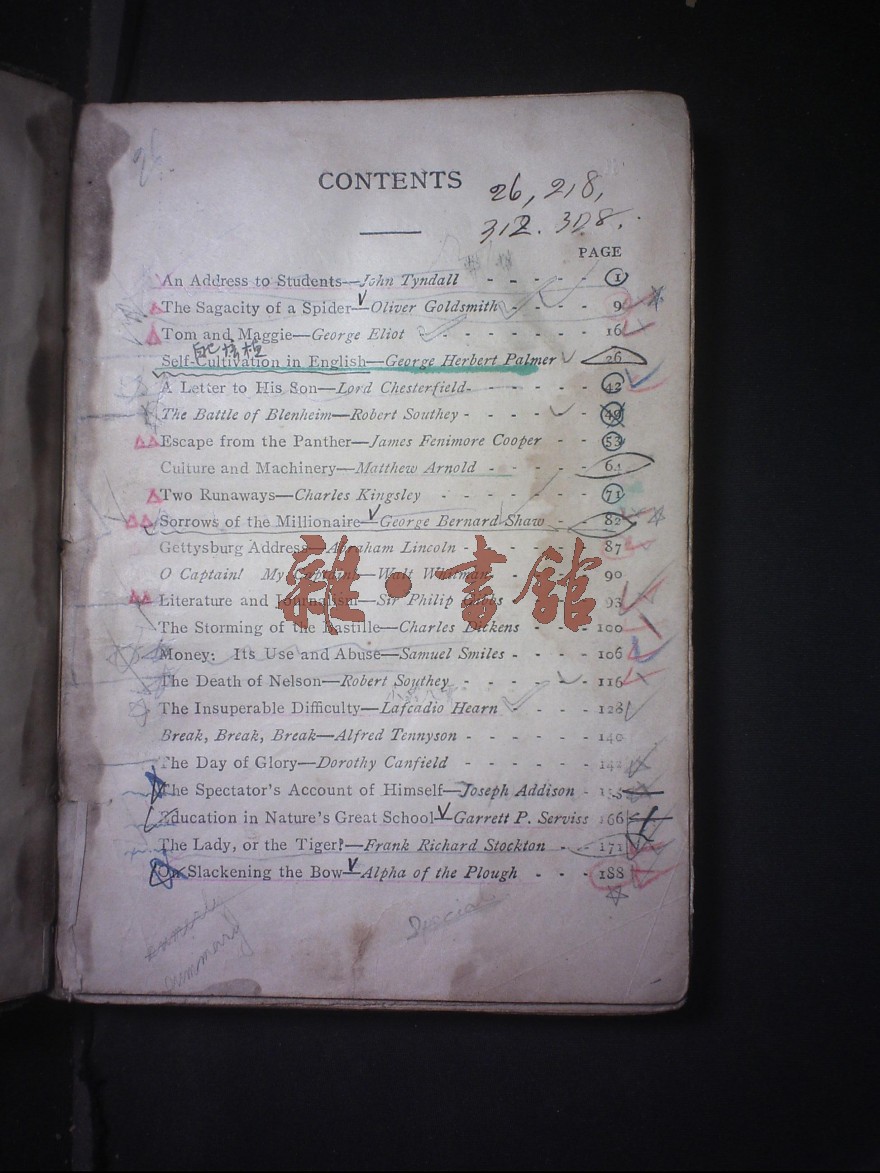 CONTENTS
26, 218,
312. 308.
PAGE
An Address to Students—John Tyndall - - - - - 1
The Sagacity of a Spider—Oliver Goldsmith - - - - 9
Tom and Maggie—George Eliot - - - - - - 16
Self-Cultivation in English—George Herbert Palmer 26
A Letter to His Son—Lord Chesterfield - - - - - - 42
The Battle of Blenheim—Robert Southey - - - - - 49
Escape from the Panther—James Fenimore Cooper - - 53
Culture and Machinery—Matthew Arnold - - - - - 61
Two Runaways—Charles Kingsley - - - - - - 71
Sorrows of the Millionaire—George Bernard Shaw - - 82
Gettysburg Address—Abraham Lincoln - - - - - 87
O Captain! My Captain!—Walt Whitman - - - - 90
Literature and Journalism—Sir Philip Gibbs - - - 93
The Storming of the Bastille—Charles Dickens - - - 100
Money: Its Use and Abuse—Samuel Smiles - - - - 106
The Death of Nelson—Robert Southey - - - - - - 116
The Insuperable Difficulty—Lafcadio Hearn - - - - 128
Break, Break, Break—Alfred Tennyson - - - - - 140
The Day of Glory—Dorothy Canfield - - - - - 142
The Spectator's Account of Himself—Joseph Addison -
Education in Nature's Great School—Garrett P. Serviss 166
The Lady, or the Tiger?—Frank Richard Stockton - - 171
On Slackening the Bow—Alpha of the Plough - - - 188
Special
summary
雜·書館